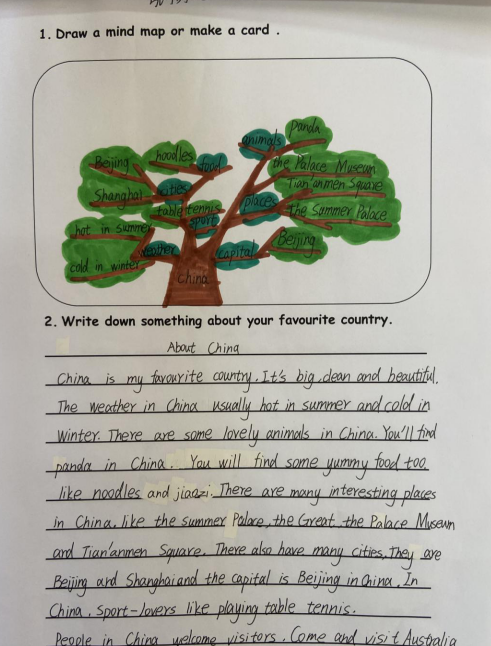 1. Draw a mind map or make a card .
animals
Panda
noodles
food
Beijing
the Palace Museum
Tian'anmen Square
cities
Shanghai
places
table tennis
the Summer Palace
sport
hot in summer
weather
capital
Beijing
cold in winter
China
2. Write down something about your favourite country.
About China
China is my favourite country. It's big, clean and beautiful.
The weather in China usually hot in summer and cold in
winter. There are some lovely animals in China. You'll find
panda in China. You will find some yummy food too
like noodles and jiaozi. There are many interesting places
in China, like the summer Palace, the Great, the Palace Museum
and Tian'anmen Square. There also have many cities, They are
Beijing and Shanghai and the capital is Beijing in China. In
China, Sport-lovers like playing table tennis.
People in China welcome visitors. Come and visit Australia